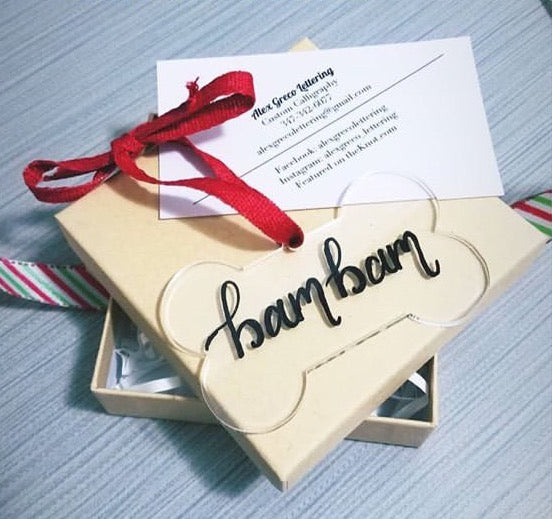 Alex Greco Lettering
Custom Calligraphy
347-342-6077
alexgrecolettering@gmail.com
Facebook: alexgrecolettering
Instagram: alexgreco_lettering
Featured on theKnot.com
bambam